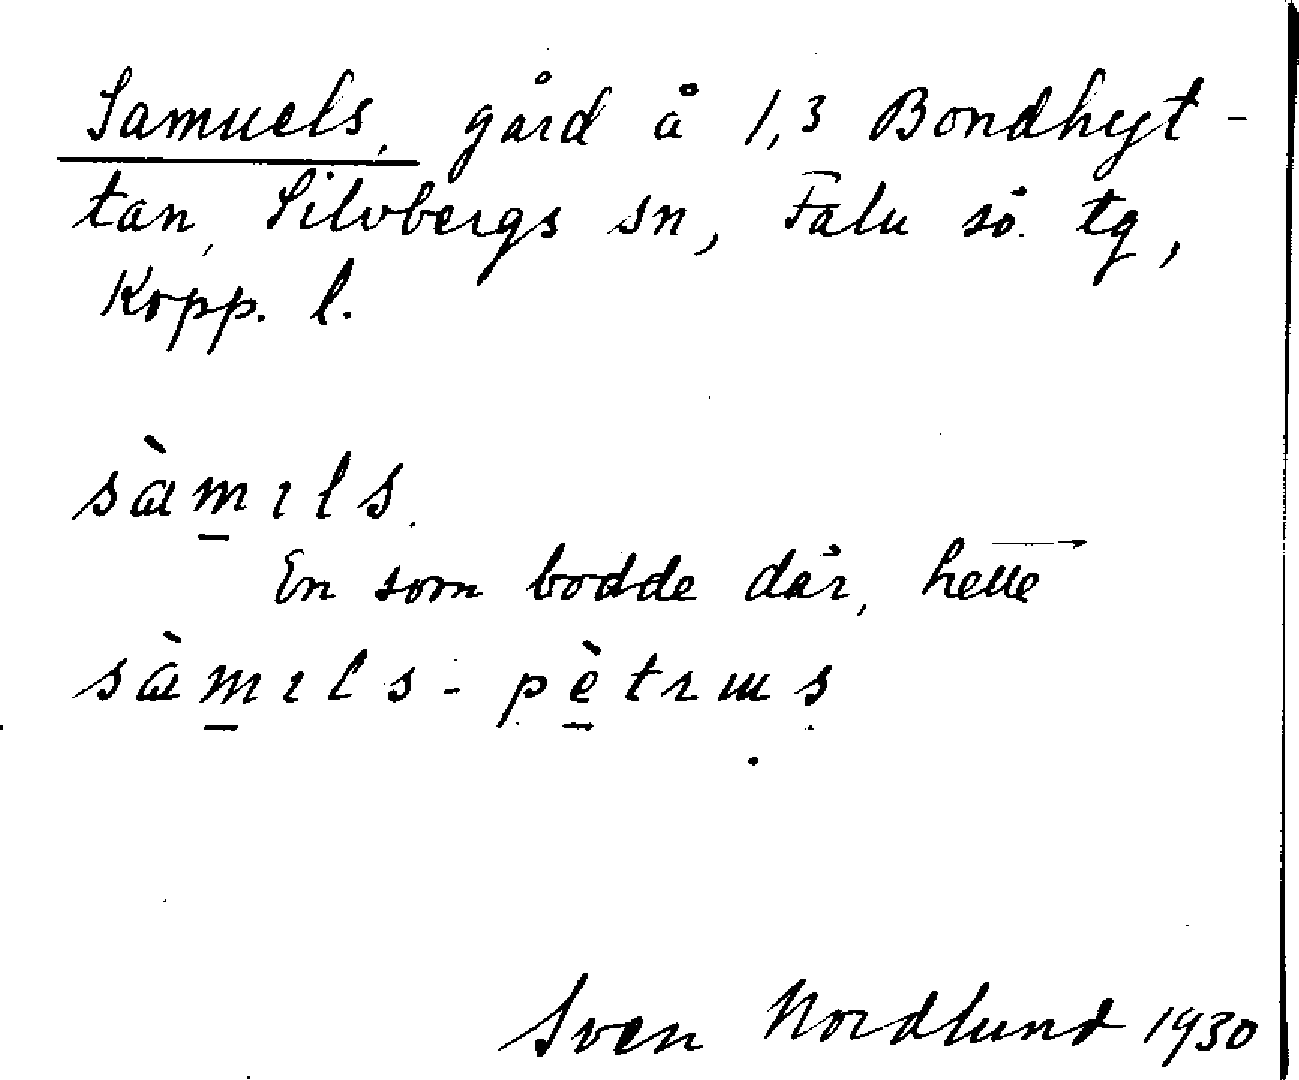 Samuels, gård å 1,3 Bondhyt-
tan, Silvbergs sn, Falu sö. tg,
Kopp. l.
sàmɩls.
En som bodde där, hette
sàmɩls-pètrɯs
Sven Nordlund 1930